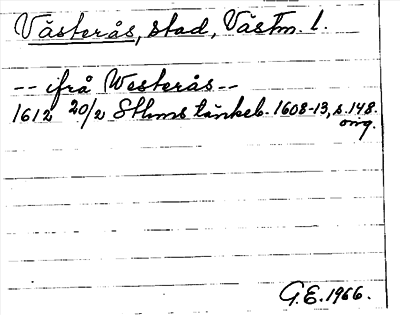 Västerås, stad, Västm. l.
-- ifrå Westerås --
1612 20/2 Sthms tänkeb. 1608-13, s. 148.
orig.
G.E. 1966.